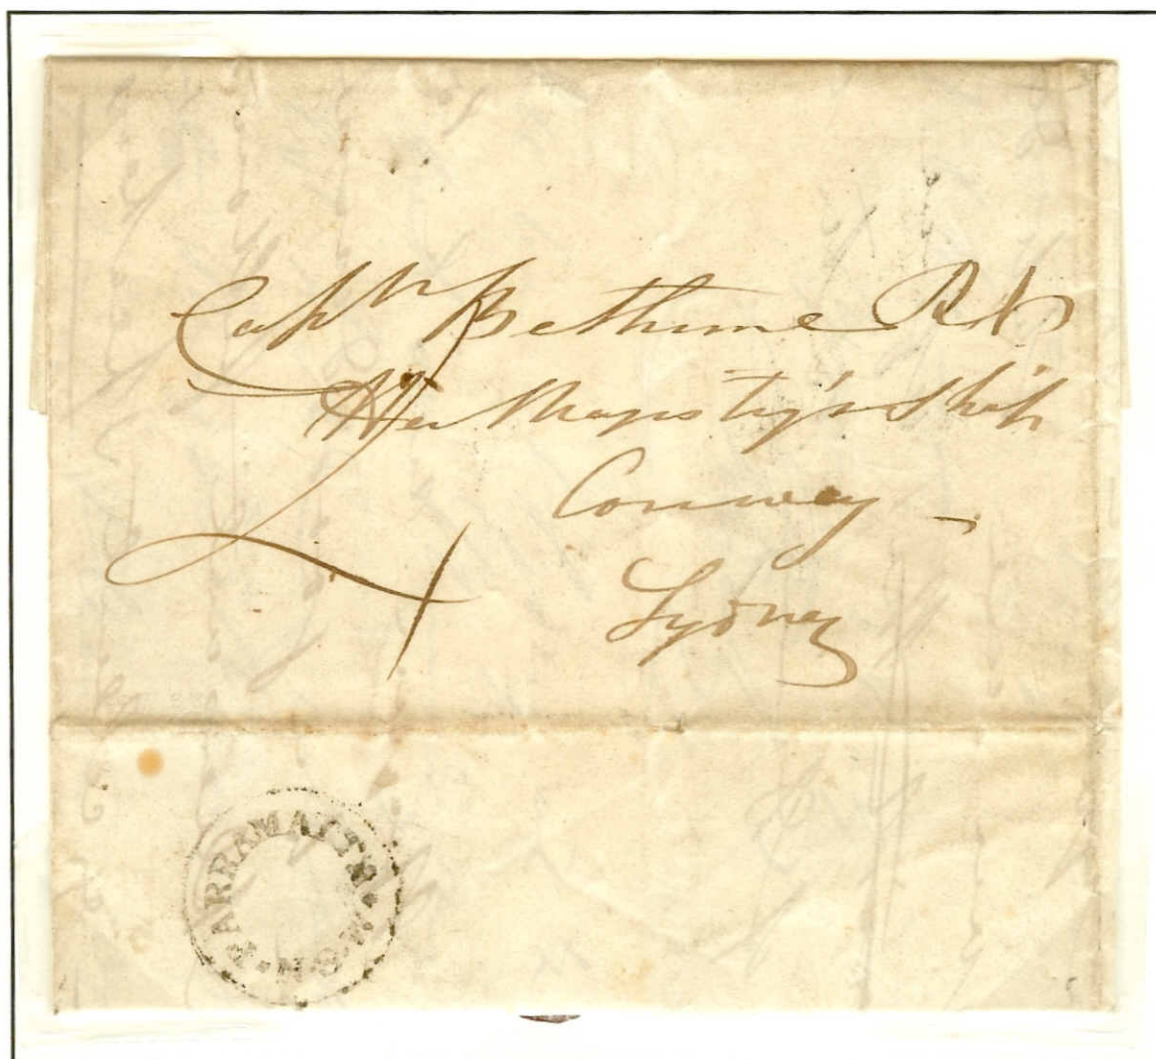 Captn Bethune RN
Her Majesty's Ship
Conway
Sydney
4
PARRAMATTA. N.S.W.